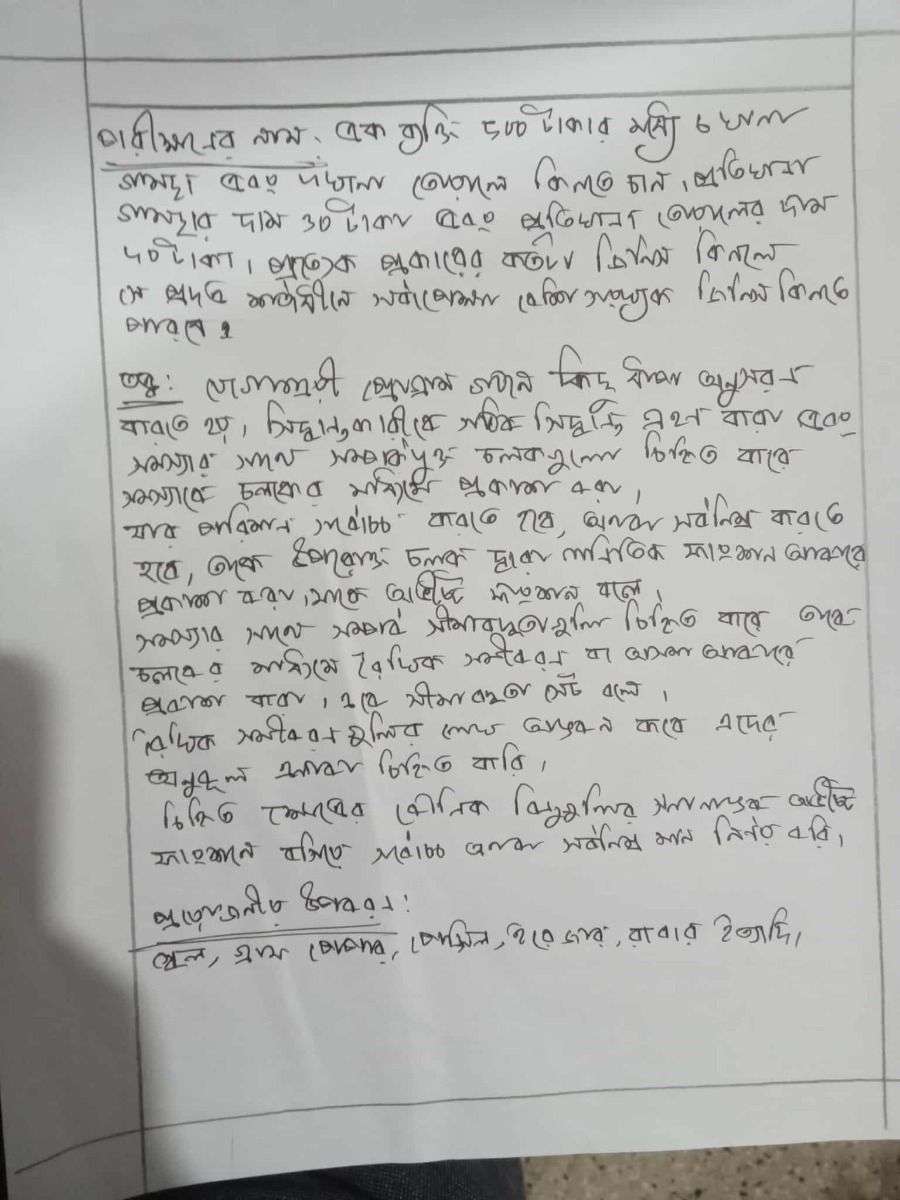 পরীক্ষণের নাম: এক ব্যক্তি ৫০০ টাকার মধ্যে ৬ খানা
গামছা এবং খানা তোয়ালে কিনতে চান। প্রতিখানা
গামছার দাম ৩০ টাকা এবং প্রতিখানা তোয়ালের দাম
টাকা। প্রত্যেক প্রকারের কতটা জিনিস কিনলে
সে প্রদত্ত শর্তাধীনে সর্বাপেক্ষা বেশি সংখ্যক জিনিস কিনতে
পারবে?
তত্ত্ব: যোগাশ্রয়ী প্রোগ্রাম গঠনে কিছু ধাপ অনুসরণ
করতে হয়, সিদ্ধান্তকারীকে সঠিক সিদ্ধান্ত গ্রহণ করা এবং
সমস্যার সাথে সম্পর্কযুক্ত চলকগুলো চিহ্নিত করে
সমস্যাকে চলকের মাধ্যমে প্রকাশ করা,
যার পরিমাণ সর্বোচ্চ করতে হবে, অথবা সর্বনিম্ন করতে
হবে, তাকে উপরোক্ত চলক দ্বারা গাণিতিক ফাংশন আকারে
প্রকাশ করা, যাকে অভীষ্ট ফাংশন বলে,
সমস্যার সাথে সম্পর্ক সীমাবদ্ধতাগুলি চিহ্নিত করে তাকে
চলকের মাধ্যমে রৈখিক সমীকরণ বা অসমতা আকারে
প্রকাশ করা, একে সীমাবদ্ধতা সেট বলে,
রৈখিক সমীকরণগুলির লেখ অঙ্কন করে এদের
অনুকূল এলাকা চিহ্নিত করি,
চিহ্নিত ক্ষেত্রের কৌণিক বিন্দুগুলির স্থানাঙ্ক অভীষ্ট
ফাংশনে বসিয়ে সর্বোচ্চ অথবা সর্বনিম্ন মান নির্ণয় করি,
প্রয়োজনীয় উপকরণ:
স্কেল, গ্রাফ পেপার, পেন্সিল, ইরেজার, রাবার ইত্যাদি,